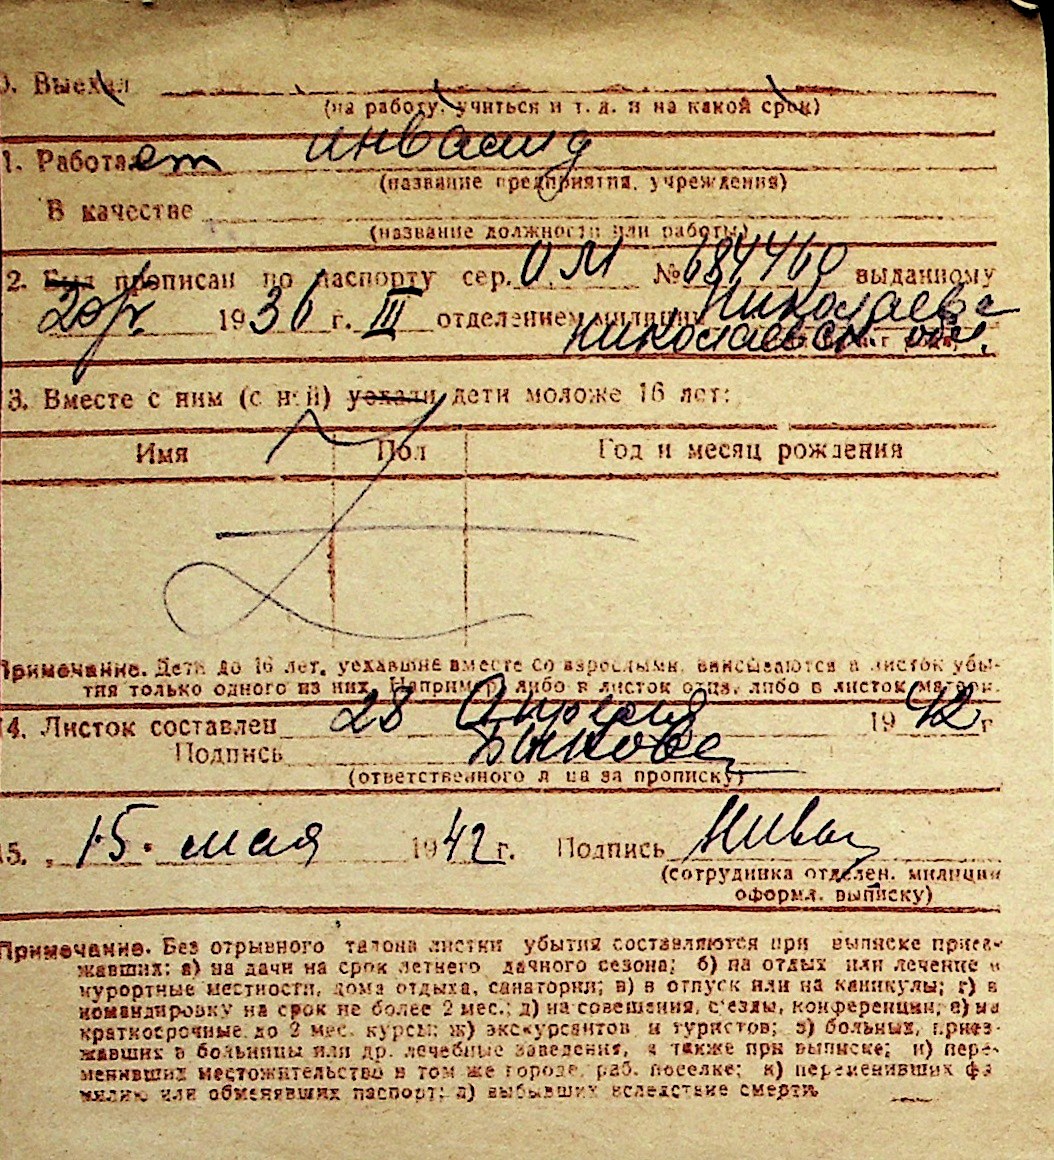 0. Выехал
(на работу, учиться и т. д. и на какой срок)
1. Работает инвалид
(название предприятия, учреждения)
В качестве
(название должности или работы)
2. Был прописан по паспорту сер. ОМ № 684460 выданному
1936 г. III отделением милиции Николаева
Николаевск обл.
3. Вместе с ним (с ней) уехали дети моложе 16 лет:
Имя Пол Год и месяц рождения
Примечание. Дети до 16 лет, уехавшие вместе со взрослыми, вписываются в листок убы-
тия только одного из них. Например, либо в листок отца, либо в листок матери.
14. Листок составлен 28 Апреля 1942 г
Подпись Быкова
(ответственного лица за прописку)
15. 15. мая 1942 г. Подпись
(сотрудника отделен. милиции
оформл. выписку)
Примечание. Без отрывного талона листки убытия составляются при выписке приез-
жавших: а) на дачи на срок летнего дачного сезона; б) на отдых или лечение в
курортные местности, дома отдыха, санатории; в) в отпуск или на каникулы; г) в
командировку на срок не более 2 мес.; д) на совещания, съезды, конференции; е) на
краткосрочные до 2 мес. курсы; ж) экскурсантов и туристов; з) больных, приез-
жавших в больницы или др. лечебные заведения, а также при выписке; и) пере-
менивших местожительство в том же городе, раб. поселке; к) переменивших фа
милию или обменявших паспорт; л) выбывших вследствие смерти.